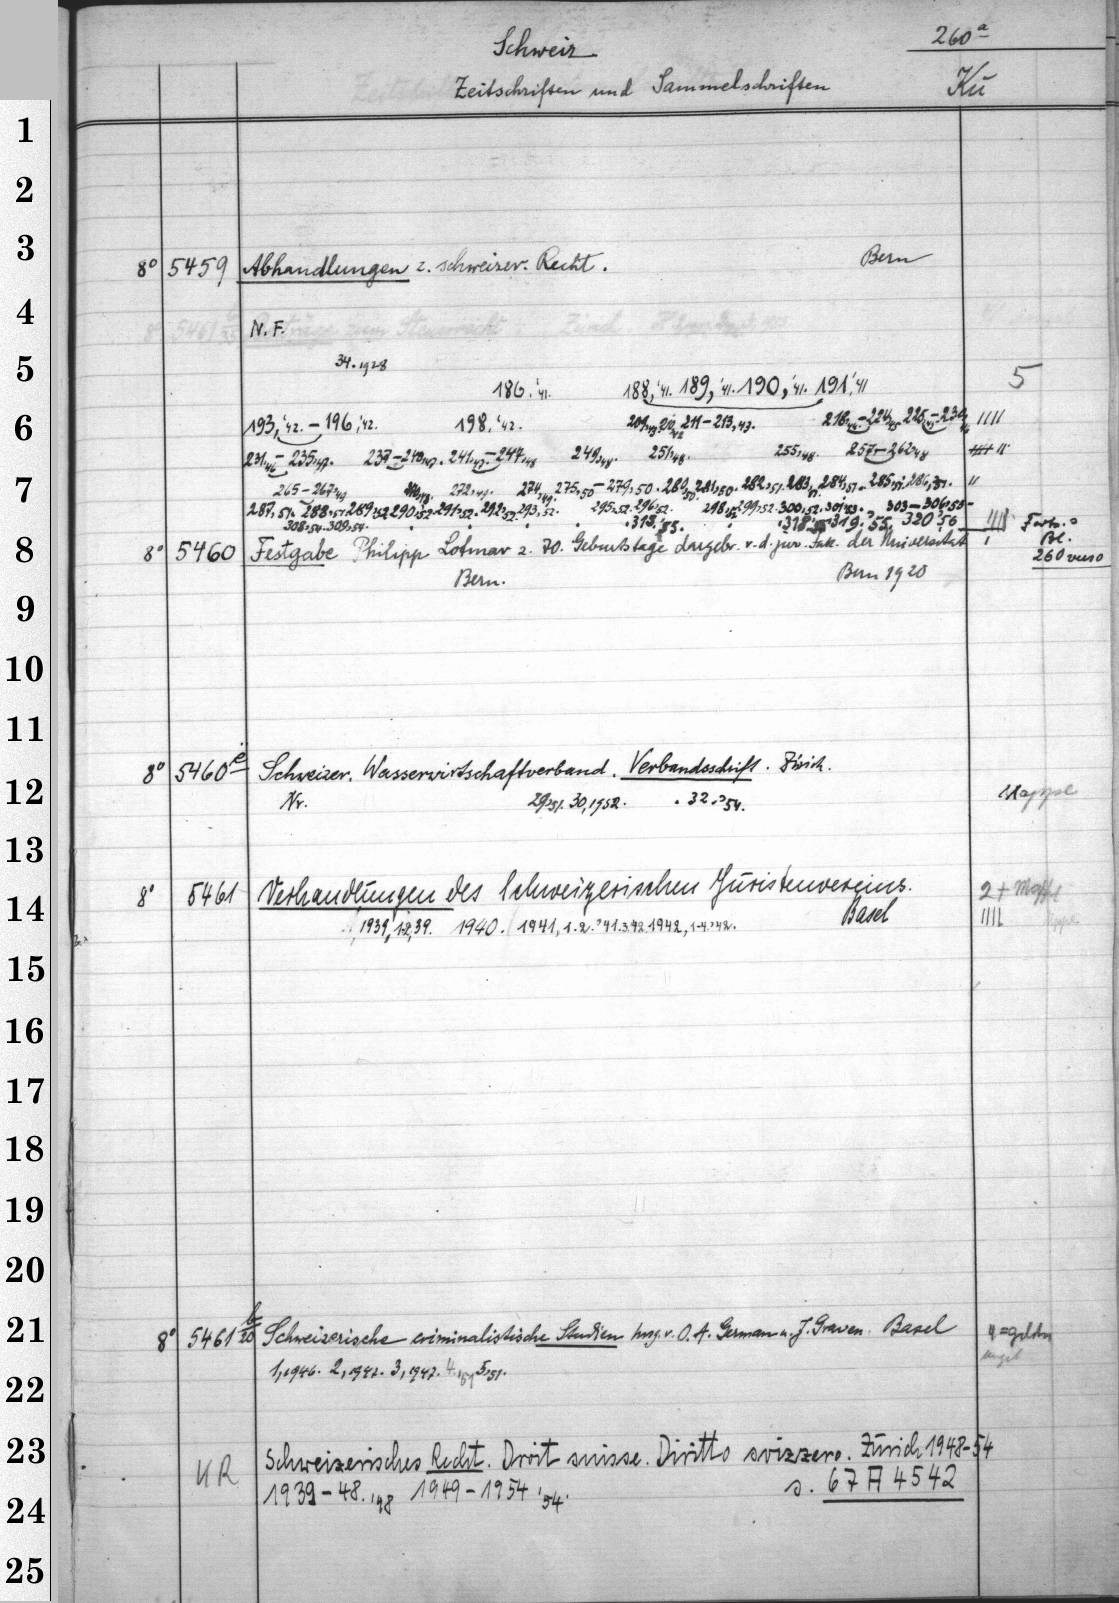 Schweiz
260ª
Zeitschriften und Sammelschriften
Kü
1
2
3
8° 5459 Abhandlungen z. schweizer. Recht. Bern
4
N.F.
5
34.1928 5
186,'41. 188,'41. 189,'41. 190,'41. 191,'41
6
193,'42. – 196,'42. 198,'42. 211–213,43.
231,46 – 235,47. 249,48. 251,48. 255,48. 257–262,48
7
265–267,49 272,49. 274,49. 275,50 – 279,50. 280,50. 281,50. 282,51. 283,51. 284,51. 285,51. 286,51.
287,51. 288,51. 289,52. 290,52. 291,52. 292,52. 293,52. 295,52. 296,52. 298,52. 299,52. 300,52. 301,53. 303–306,53
308,54. 309,54. 313,55. 318,55. 319,55. 320,56
Forts.:
Bl.
260 verso
8
8° 5460 Festgabe Philipp Lotmar z. 70. Geburtstage dargebr. v. d. jur. Fak. der Universität
Bern. Bern 1920
9
10
11
8° 5460e Schweizer. Wasserwirtschaftverband. Verbandsschrift. Zürich.
12
Nr. 29,51. 30,1952. 32,54. Mappe
13
8° 5461 Verhandlungen des Schweizerischen Juristenvereins.
14
Basel
1939,1.2,39. 1940. 1941, 1.2.'41. 3.42. 1942, 1-4.'42.
15
16
17
18
19
20
21
8° 5461 b/20 Schweizerische criminalistische Studien hrsg. v. O. A. German u. J. Graven. Basel
1,1946. 2,1947. 3,1947. 4,51 5,51.
22
23
UR Schweizerisches Recht. Droit suisse. Diritto svizzero. Zürich 1948-54
1939–48.'48 1949–1954 '54. s. 67 A 4542
24
25